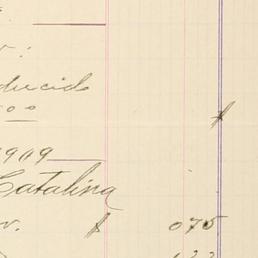 r:
ducido
00
$
1909
Catalina
v. $ 075